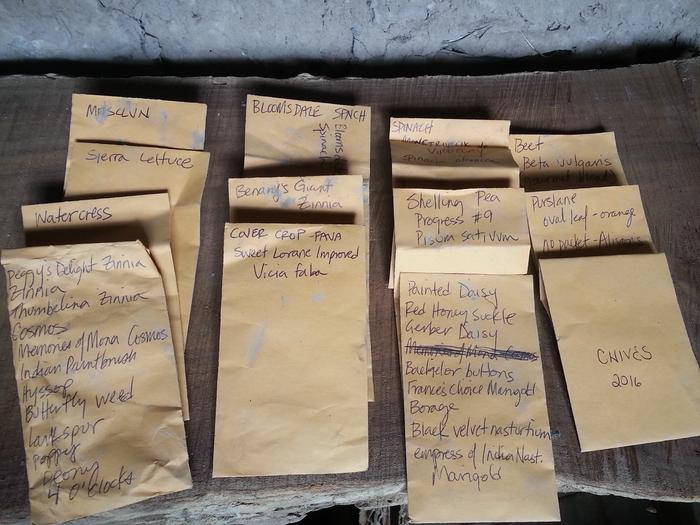 MESCLUN
Sierra Lettuce
Watercress
Peggy's Delight Zinnia
Zinnia
Thumbelina Zinnia
Cosmos
Memories of Mona Cosmos
Indian Paintbrush
Hyssop
Butterfly weed
Larkspur
Poppy
Peony
4 O'clocks
BLOOMSDALE SPNCH
Benary's Giant
Zinnia
COVER CROP - FAVA
Sweet Lorane Improved
Vicia faba
SPINACH
Shelling Pea
Progress #9
Pisum sativum
Painted Daisy
Red Honeysuckle
Gerber Daisy
Memories of Mona Cosmos
Bachelor buttons
Frances Choice Marigold
Borage
Black velvet nasturtium
empress of India Nast.
Marigold
Beet
Beta vulgaris
Purslane
oval leaf - orange
no packet - Alison's
CHIVES
2016